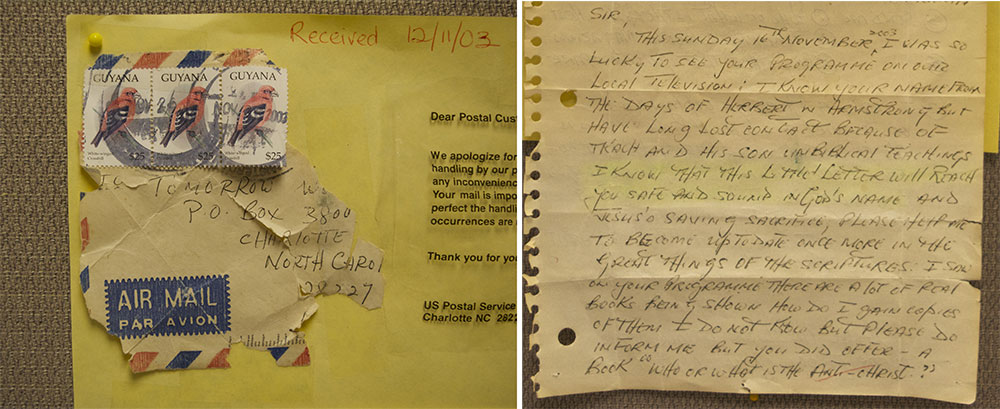 Received 12/11/03
GUYANA GUYANA GUYANA
$25 $25 $25
TOMORROW
P.O. BOX 3800
CHARLOTTE
NORTH CAROL
28227
AIR MAIL
PAR AVION
Dear Postal Cus
We apologize for
handling by our p
any inconvenienc
Your mail is impo
perfect the handli
occurrences are
Thank you for yo
US Postal Service
Charlotte NC 2822
SIR,
THIS SUNDAY 16TH NOVEMBER, 2003 I WAS SO
LUCKY TO SEE YOUR PROGRAMME ON OUR
LOCAL TELEVISION: I KNOW YOUR NAME FROM
THE DAYS OF HERBERT W ARMSTRONG BUT
HAVE LONG LOST CONTACT BECAUSE OF
AND HIS SON UNBIBLICAL TEACHINGS
I KNOW THAT THIS LITTLE LETTER WILL REACH
YOU SAFE AND SOUND IN GOD'S NAME AND
JESUS'S SAVING SACRIFICE, PLEASE HELP ME
TO BECOME UPTODATE ONCE MORE IN THE
GREAT THINGS OF THE SCRIPTURES. I SAW
ON YOUR PROGRAMME THERE ARE A LOT OF REAL
BOOKS BEING SHOWN HOW DO I GAIN COPIES
OF THEM I DO NOT KNOW BUT PLEASE DO
INFORM ME BUT YOU DID OFFER - A
BOOK "WHO OR WHAT IS THE ANTI-CHRIST."?